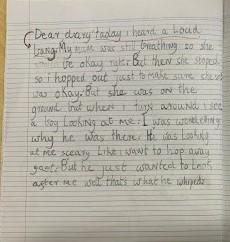 Dear diary today i heard a Loud
bang. My mum was still breathing so she
be okay right. But then she stoped
so i hopped out just to make sure she
was okay. But she was on the
ground but when i turn around i see
a boy Looking at me. I was wondering
why he was there. He was Looking
at me sceary Like i want to hop away
But he just wanted to Look
after me well that's what he